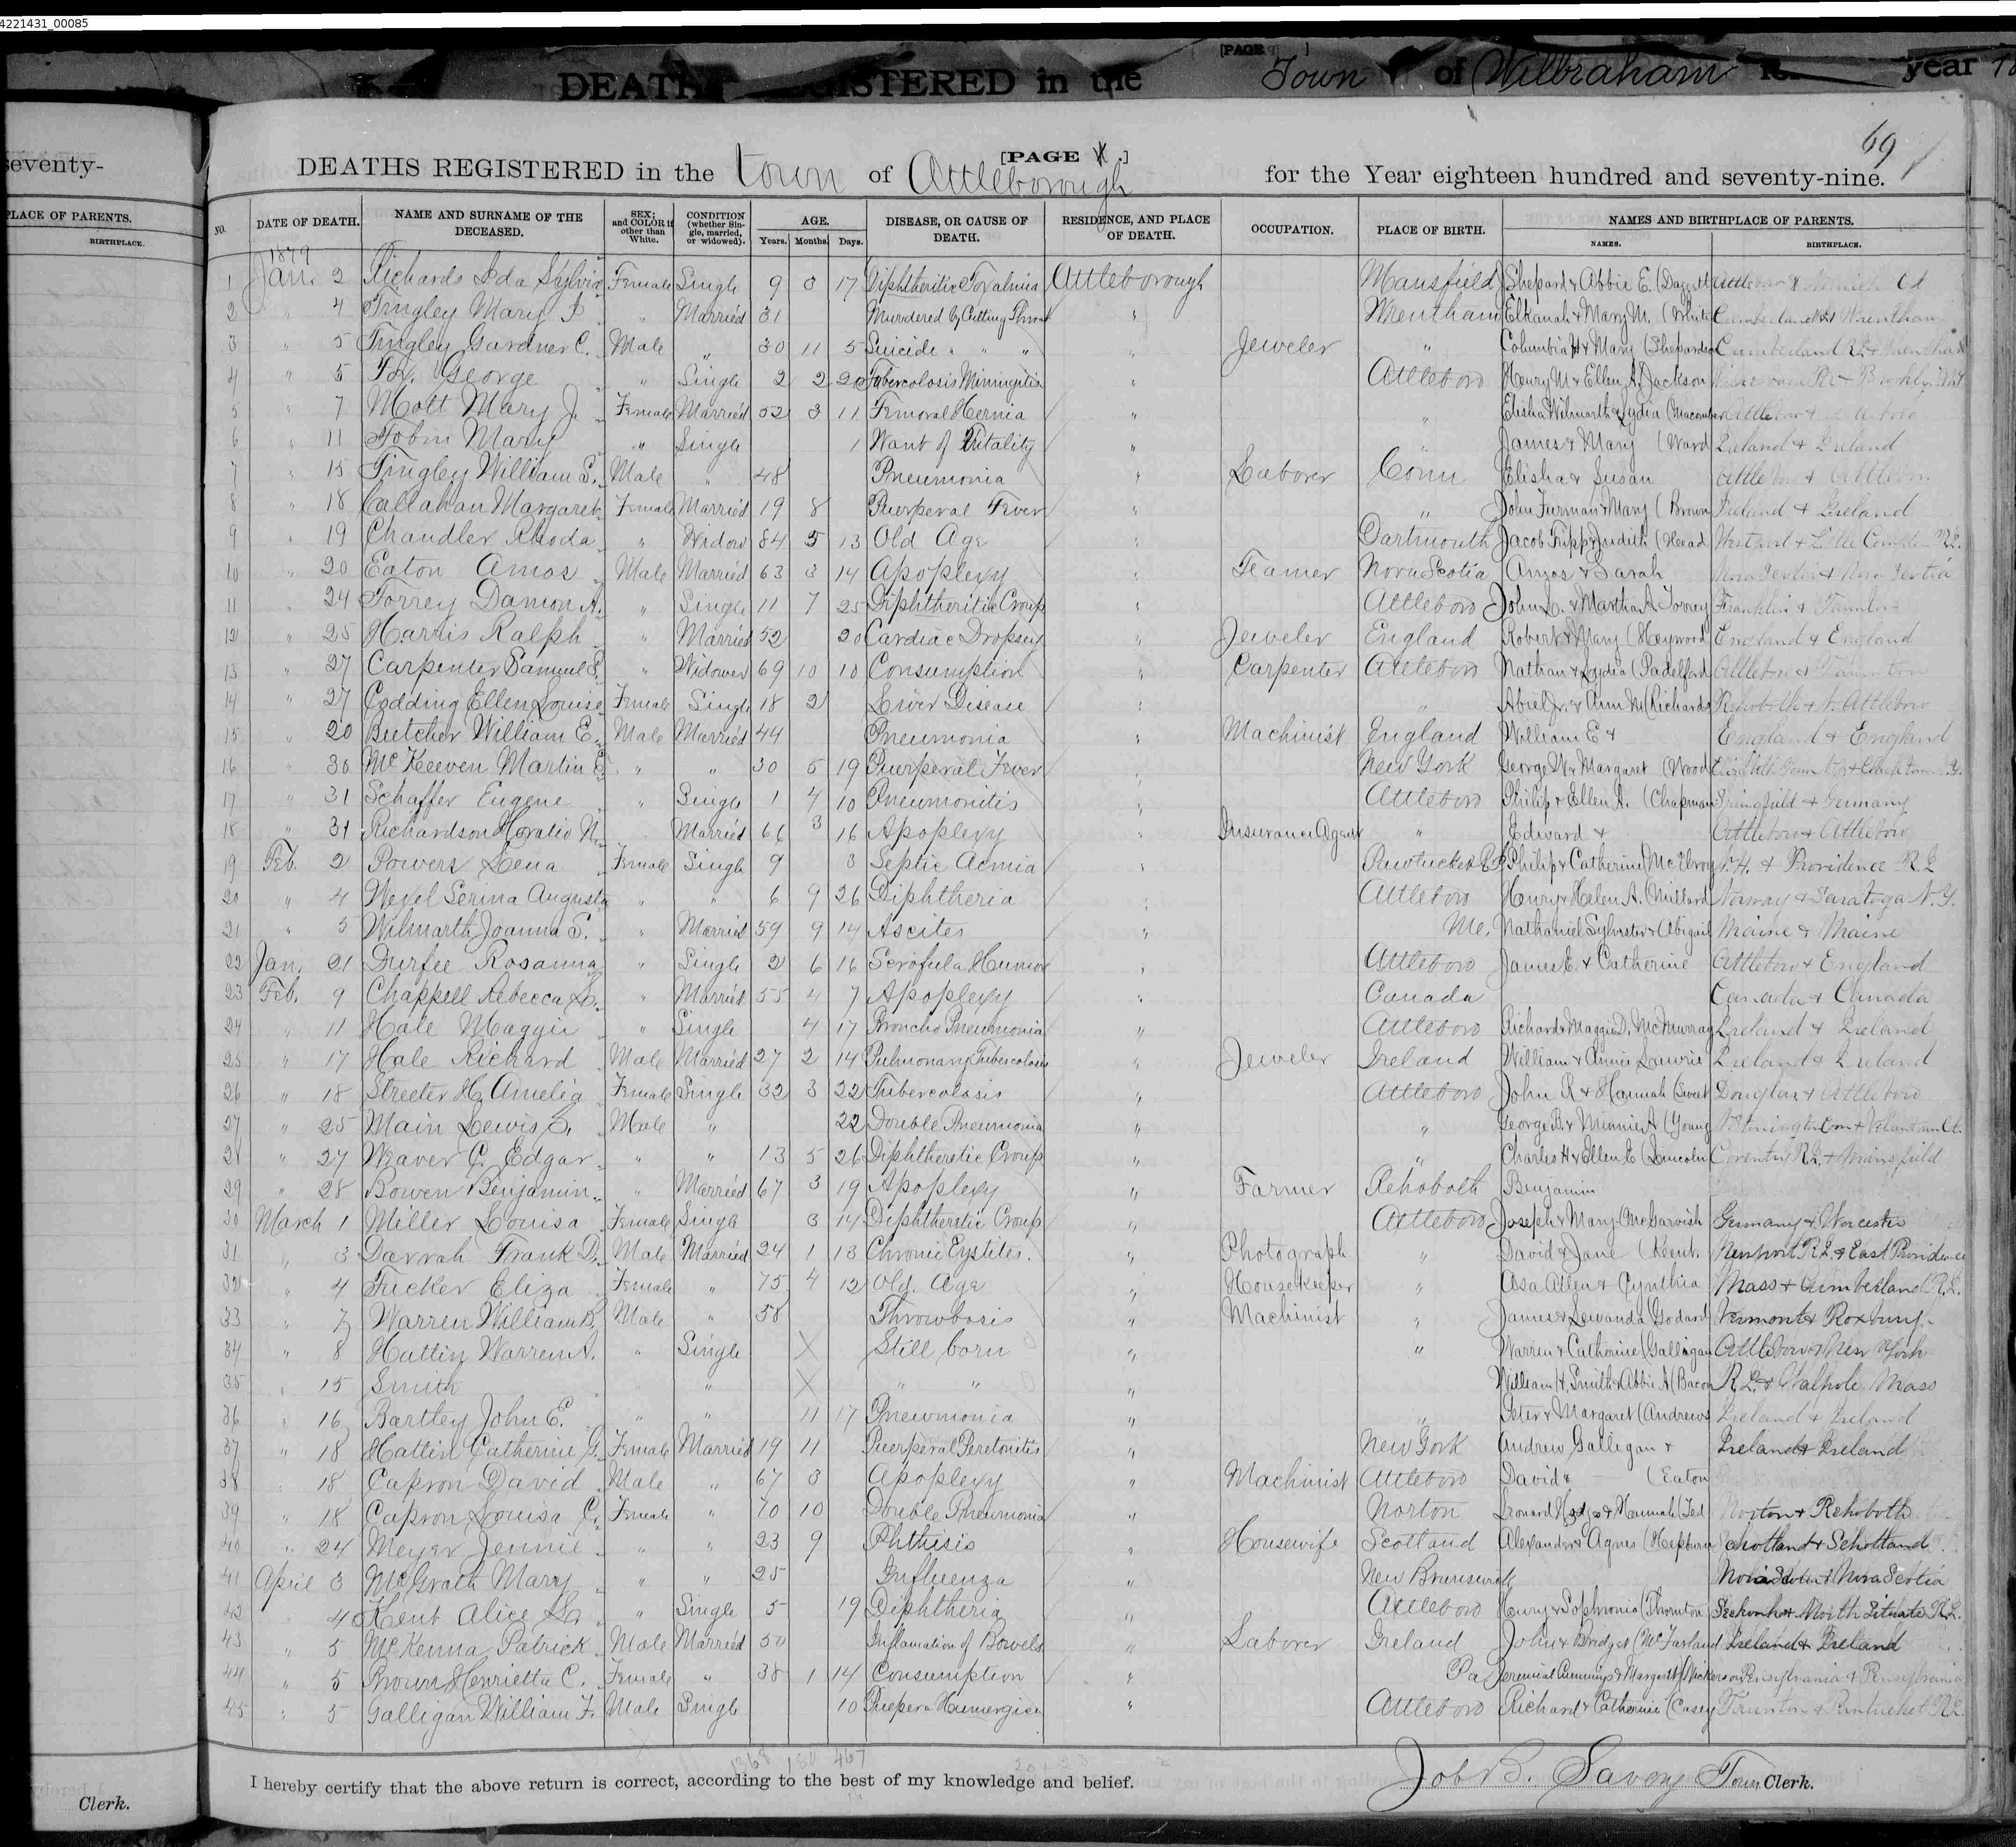 4221431_00085
[PAGE ]
DEATHS REGISTERED in the Town of Wilbraham year
seventy-
PLACE OF PARENTS.
BIRTHPLACE.
Clerk.
69
[PAGE .]
DEATHS REGISTERED in the town of Attleborough for the Year eighteen hundred and seventy-nine.
NO. DATE OF DEATH. NAME AND SURNAME OF THE DECEASED. SEX; and COLOR if other than White. CONDITION (whether Single, married, or widowed). AGE. Years. Months. Days. DISEASE, OR CAUSE OF DEATH. RESIDENCE, AND PLACE OF DEATH. OCCUPATION. PLACE OF BIRTH. NAMES AND BIRTHPLACE OF PARENTS. NAMES. BIRTHPLACE.
1879
1 Jan. 2 Richards Ida Sylvia Female Single 9 8 17 Diphtheritic Attleborough Mansfield Shepard & Abbie E. (Daggett
2 " 4 Tingley Mary " Married 31 Murdered by Cutting Throat " Wrentham Elkanah & Mary M. (White Cumberland & Wrentham
3 " 5 Tingley Gardner C. Male " 30 11 5 Suicide " " " " Jeweler " Columbia & Mary (Shepardson Cumberland R.I. &
4 " 5 George " Single 2 2 20 Tubercolosis Miningitis " Attleboro Henry M & Ellen A. Jackson
5 " 7 Mott Mary J. Female Married 52 3 11 Femoral Hernia " " Elisha Wilmarth & Lydia (Macomber
6 " 11 Tobin Mary " Single 1 Want of Vitality " " James & Mary (Ward Ireland & Ireland
7 " 15 Tingley William S. Male " 48 Pneumonia " Laborer Conn Elisha & Susan Attleboro & Attleboro
8 " 18 Callahan Margaret Female Married 19 8 Puerperal Fever " " John Furman & Mary (Brown Ireland & Ireland
9 " 19 Chandler Rhoda " Widow 84 5 13 Old Age " Dartmouth Jacob Tripp & Judith (Head Westport & Little Compton R.I.
10 " 20 Eaton Amos Male Married 63 3 14 Apoplexy " Teamer Nova Scotia Amos & Sarah Nova Scotia & Nova Scotia
11 " 24 Torrey Damon A. " Single 11 7 25 Diphtheritic Croup " Attleboro John L. & Martha A Torrey Franklin &
12 " 25 Harris Ralph " Married 52 20 Cardiac Dropsey " Jeweler England Robert & Mary (Heywood England & England
13 " 27 Carpenter Samuel S. " Widower 69 10 10 Consumption " Carpenter Attleboro Nathan & Lydia (Padelford Attleboro & Taunton
14 " 27 Codding Ellen Louise Female Single 18 2 Liver Disease " " Abiel Jr. & Ann M (Richards Rehoboth & N. Attleboro
15 " 20 Butcher William E. Male Married 44 Pneumonia " Machinist England William E & England & England
16 " 30 McKeeven Martin E. " " 30 5 19 Puerperal Fever " New York George W & Margaret (Wood
17 " 31 Schaffer Eugene " Single 1 4 10 Pneumonitis " Attleboro Philip & Ellen A. (Chapman Springfield & Germany
18 " 31 Richardson Horatio N. " Married 66 3 16 Apoplexy " Insurance Agent " Edward & Attleboro & Attleboro
19 Feb. 2 Powers Lena Female Single 9 3 Septic Acmia " Pawtucket R.I. Philip & Catherine McElroy N.H. & Providence R.I.
20 " 4 Wexel Serina Augusta " " 6 9 26 Diphtheria " Attleboro Henry & Helen A. (Millard Norway & Saratoga N.Y.
21 " 5 Wilmarth Joanna S. " Married 59 9 14 Ascites " Me. Nathaniel Sylvester & Abigail Maine & Maine
22 Jan. 21 Durfee Rosanna " Single 2 6 16 Scrofula Humor " Attleboro James E. & Catherine Attleboro & England
23 Feb. 9 Chappell Rebecca L. " Married 55 4 7 Apoplexy " Canada Canada & Canada
24 " 11 Hale Maggie " Single 4 17 Broncho Pneumonia " Attleboro Richard & Maggie D. McMurray Ireland & Ireland
25 " 17 Hale Richard Male Married 27 2 14 Pulmonary Tubercolosis " Jeweler Ireland William & Annie Lowrie Ireland & Ireland
26 " 18 Streeter H. Amelia Female Single 32 3 22 Tubercolosis " Attleboro John R & Hannah (Sweet Douglas & Attleboro
27 " 25 Main Lewis E. Male " 22 Double Pneumonia " " George B. & Minnie A (Young
28 " 27 Weaver C. Edgar " " 13 5 26 Diphtheretic Croup " " Charles H & Ellen E (Lincoln Coventry R.I. & Mansfield
29 " 28 Bowen Benjamin " Married 67 3 19 Apoplexy " Farmer Rehoboth Benjamin
30 March 1 Miller Louisa Female Single 3 14 Diphtheretic Croup " Attleboro Joseph & Mary McGarvish Germany & Worcester
31 " 3 Darrah Frank D. Male Married 24 1 13 Chronic Cystites. " Photograph " David & Jane (Kent. Newport R.I. & East Providence
32 " 4 Tucker Eliza Female " 75 4 12 Old Age " Housekeeper " Asa Allen & Cynthia Mass & Cumberland R.I.
33 " 7 Warren William B. Male " 58 Throwbosis " Machinist " James & Lewanda (Godard Vermont & Roxbury
34 " 8 Hattin Warren A. " Single X Still born " " Warren & Catherine (Galligan Attleboro & New York
35 " 15 Smith " X " " " William H. Smith & Abbie A (Bacon R.I. & Walpole Mass
36 " 16 Bartley John E. " " 11 17 Pnewmonia " " Peter & Margaret (Andrews Ireland & Ireland
37 " 18 Hattin Catherine G. Female Married 19 11 Puerperal Peretonitis " New York Andrew Galligan & Ireland & Ireland
38 " 18 Capron David Male " 67 3 Apoplexy " Machinist Attleboro David & (Eaton
39 " 18 Capron Louisa C. Female " 70 10 Double Pneumonia " Norton Leonard Hodges & Hannah Norton & Rehoboth
40 " 24 Meyer Jennie " " 23 9 Phthisis " Housewife Scotland Alexander & Agnes (Hepburn Schotland & Schottand
41 April 3 McGrath Mary " " 25 Influenza " New Brunswick Nova Scotia & Nova Scotia
42 " 4 Kent Alice " Single 5 19 Diphtheria " Attleboro Henry & Sophronia (Thornton Seekonk & North Situate R.I.
43 " 5 McKenna Patrick Male Married 50 Inflamation of Bowels " Laborer Ireland John & Bridget (McFarland Ireland & Ireland
44 " 5 Brown Henrietta C. Female " 38 1 14 Consumption " Pa Jeremiah Cummings & Margarett (Nickerson Pensylvania & Pensylvania
45 " 5 Galligan William F. Male Single 10 " Attleboro Richard & Catherine (Casey Taunton & Pawtucket R.I.
1368 181 467
I hereby certify that the above return is correct, according to the best of my knowledge and belief.
Job B. Savery Town Clerk.